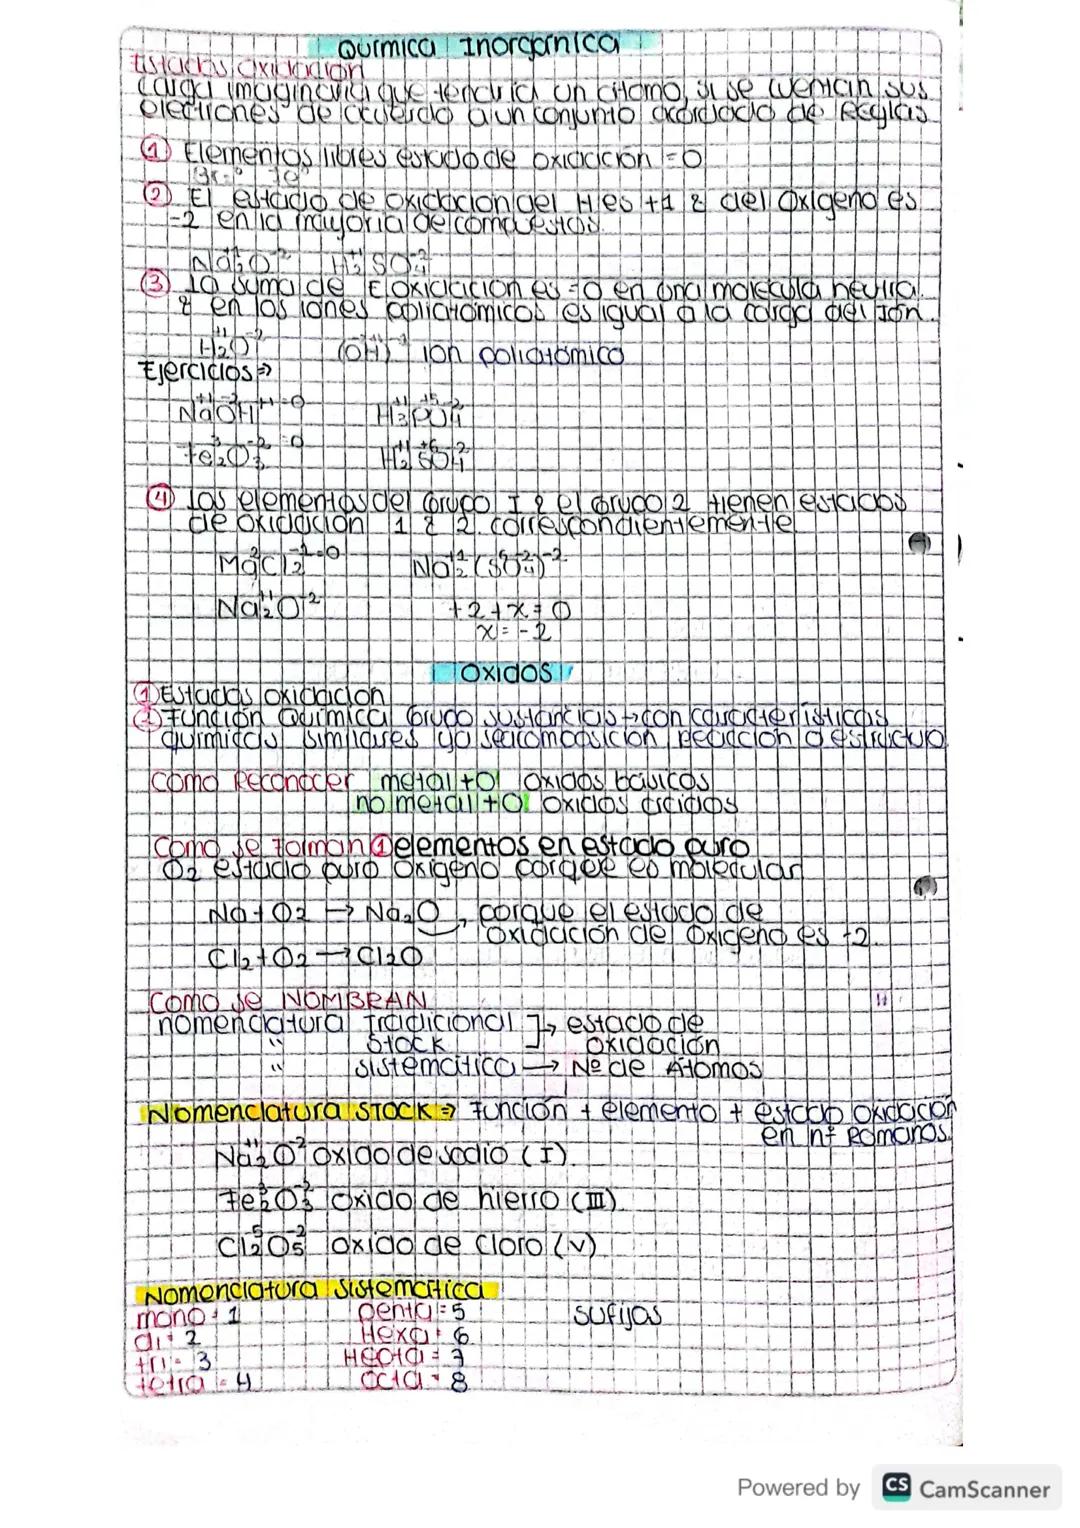 Química Inorgánica
Estados oxidación
carga imaginaria que tendría un átomo, si se veían sus
electrones de acuerdo a un conjunto acordado de Reglas
① Elementos libres estado de oxidación = 0
② El estado de oxidación del H es +1 & del Oxígeno es
-2 en la mayoría de compuestos.
Na₂⁺¹O⁻² H₂⁺¹SO₄⁻²
③ La suma de E oxidación es =0 en una molécula neutra
& en los iones poliatómicos es igual a la carga del Ion.
H₂⁺¹O⁻² (OH)⁻¹ ion poliatómico
Ejercicios⇒
Na⁺¹O⁻²H⁺¹=0 H₃⁺¹P⁺⁵O₄⁻²
Fe₂³O₃⁻²=0 H₂⁺¹S⁺⁶O₄⁻²
④ Los elementos del Grupo I & el Grupo 2 tienen estados
de oxidación 1 & 2 correspondientemente
Mg²Cl₂⁻¹=0 Na₂⁺¹(SO₄)⁻²
Na₂⁺¹O⁻² +2+x=0
x=-2
OXIDOS
① Estados oxidación
② Función Química Grupo sustancias→con características
químicas similares ya sea composición reacción o estructu
Como Reconocer metal+O oxidos básicos
no metal+O oxidos ácidos
Como se Forman ① elementos en estado puro
O₂ estado puro oxígeno porque es molecular
Na+O₂ → Na₂O, porque el estado de
oxidación del oxígeno es -2.
Cl₂+O₂→Cl₂O
Como se NOMBRAN
nomenclatura Tradicional ]→ estado de
" Stock oxidación
" sistemática → Nº de Átomos
Nomenclatura STOCK⇒ Función + elemento + estado oxidación
en nº Romanos
Na₂⁺¹O⁻² oxido de sodio (I).
Fe₂³O₃⁻² oxido de hierro (III)
Cl₂⁵O₅⁻² oxido de cloro (V)
Nomenclatura Sistemática
mono=1 penta=5 sufijos
di=2 Hexa=6
tri=3 Hepta=7
tetra=4 octa=8
Powered by CS CamScanner